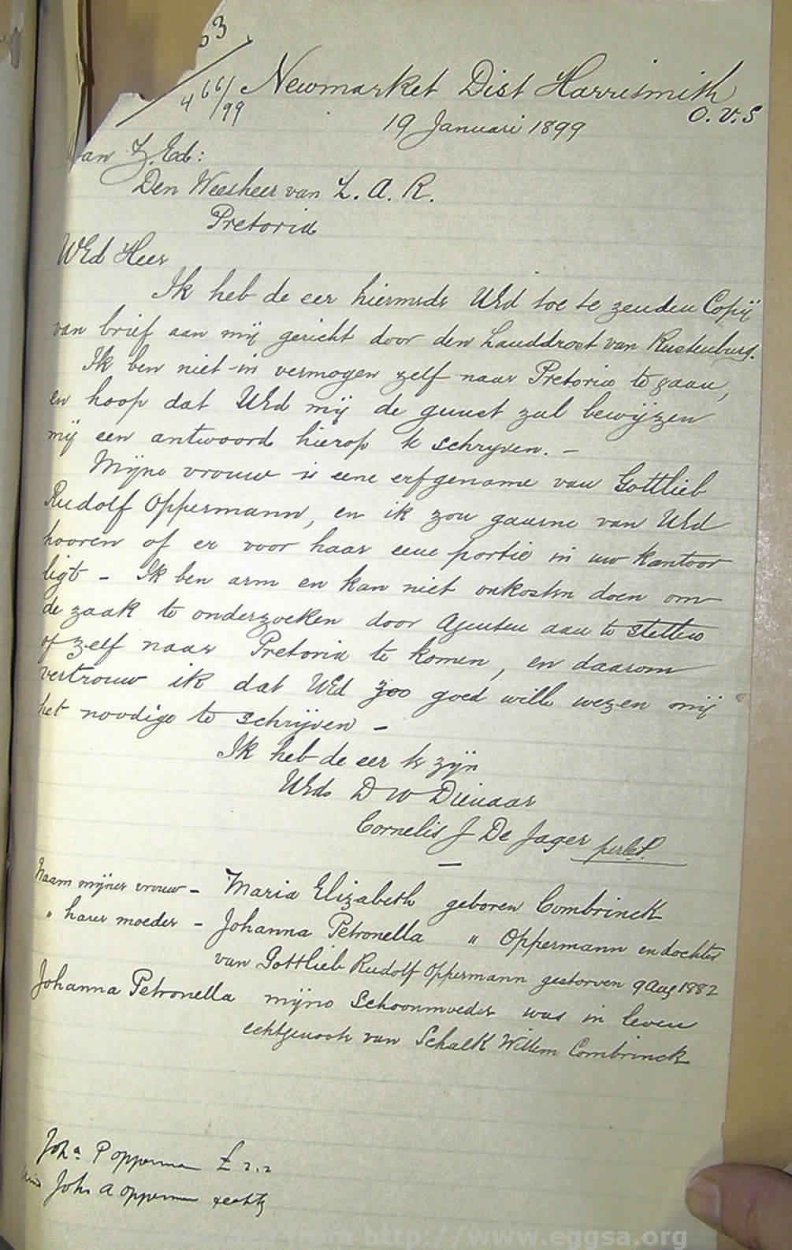 466/99
Newmarket Dist Harrismith
O.V.S
19 Januari 1899
Aan Z.Ed:
Den Weesheer van Z.A.R.
Pretoria
WEd Heer
Ik heb de eer hiermede UEd toe te zenden Copij
van brief aan mij gericht door den Landdrost van Rustenburg.
Ik ben niet in vermogen zelf naar Pretoria te gaan,
en hoop dat UEd mij de gunst zal bewijzen
mij een antwoord hierop te schryven. –
Mijne vrouw is eene erfgename van Gottlieb
Rudolf Oppermann, en ik zou gaarne van UEd
hooren of er voor haar eene portie in uw kantoor
ligt – Ik ben arm en kan niet onkosten doen om
de zaak te onderzoeken door Agenten aan te stellen
of zelf naar Pretoria te komen, en daarom
vertrouw ik dat UEd zoo goed will wezen mij
het noodige te schrijven –
Ik heb de eer te zijn
UEds D W Dienaar
Cornelis J De Jager
Naam mijner vrouw – Maria Elizabeth geboren Combrinck
" harer moeder – Johanna Petronella " Oppermann en dochter
van Gottlieb Rudolf Oppermann gestorven 9 Aug 1882
Johanna Petronella mijne Schoonmoeder was in leven
echtgenoote van Schalk Willem Combrinck
Joh.a P opperman £
Joh. A opperman
http://www.eggsa.org